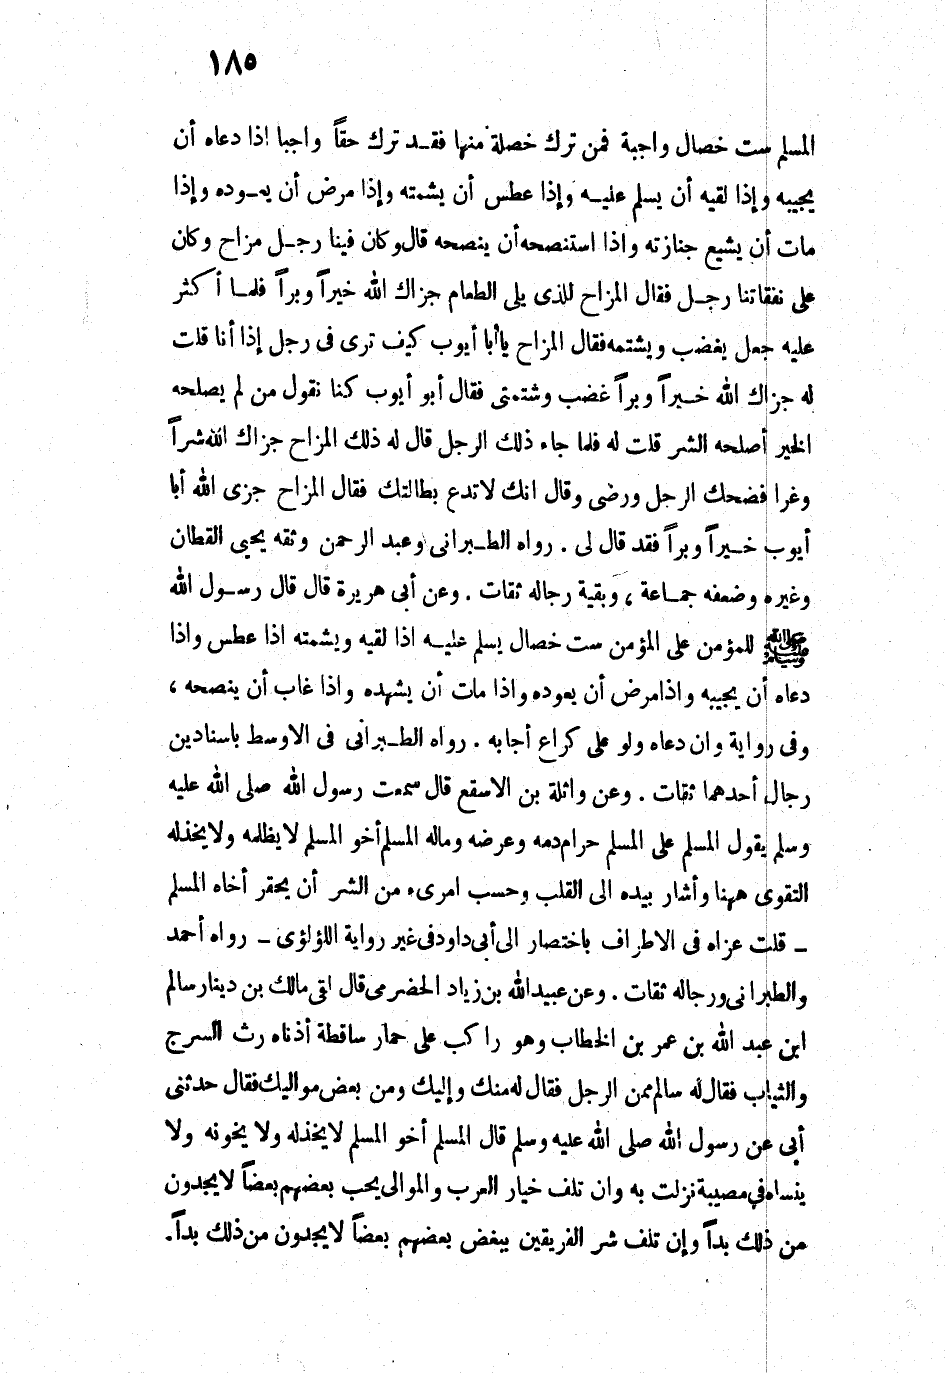 ١٨٥
المسلم ست خصال واجبة فمن ترك خصلة منها فقـد ترك حقاً واجبا اذا دعاه أن
يجيبه وإذا لقيه أن يسلم عليـه وإذا عطس أن يشمته وإذا مرض أن يعـوده وإذا
مات أن يشيع جنازته واذا استنصحه أن ينصحه قال وكان فينا رجـل مزاح وكان
على نفقاتنا رجـل فقال المزاح للذى يلى الطعام جزاك الله خيراً وبراً فلمـا أكثر
عليه جعل يغضب ويشتمه فقال المزاح ياأبا أيوب كيف ترى فى رجل إذا أنا قلت
له جزاك الله خـيراً وبراً غضب وشتمنى فقال أبو أيوب كنا نقول من لم يصلحه
الخير أصلحه الشر قلت له فلما جاء ذلك الرجل قال له ذلك المزاح جزاك الله شراً
وغرا فضحك الرجل ورضى وقال انك لاتدع بطالتك فقال المزاح جزى الله أبا
أيوب خـيراً وبراً فقد قال لى . رواه الطـبرانى وعبد الرحمن وثقه يحيى القطان
وغيره وضعفه جمـاعة ، وبقية رجاله ثقات . وعن أبى هريرة قال قال رسـول الله
ﷺ للمؤمن على المؤمن ست خصال يسلم عليـه اذا لقيه ويشمته اذا عطس واذا
دعاه أن يجيبه واذامرض أن يعوده واذا مات أن يشهده واذا غاب أن ينصحه ،
وفى رواية وان دعاه ولو على كراع أجابه . رواه الطـبرانى فى الاوسط باسنادين
رجال أحدهما ثقات . وعن واثلة بن الاسقع قال سمعت رسول الله صلى الله عليه
وسلم يقول المسلم على المسلم حرام دمه وعرضه وماله المسلم أخو المسلم لايظلمه ولايخذله
التقوى ههنا وأشار بيده الى القلب وحسب امرىء من الشر أن يحقر أخاه المسلم
ـ قلت عزاه فى الاطراف باختصار الى أبى داود فى غير رواية اللؤلؤى ـ رواه أحمد
والطبرانى ورجاله ثقات . وعن عبيدالله بن زياد الحضرمى قال لقى مالك بن دينار سالم
ابن عبد الله بن عمر بن الخطاب وهو راكب على حمار ساقطة أذناه رث السرج
والثياب فقال له سالم ممن الرجل فقال له منك وإليك ومن بعض مواليك فقال حدثنى
أبى عن رسول الله صلى الله عليه وسلم قال المسلم أخو المسلم لايخذله ولا يخونه ولا
ينساه في مصيبة نزلت به وان تلف خيار العرب والموالى يحب بعضهم بعضاً لايجدون
من ذلك بداً وإن تلف شر الفريقين يبغض بعضهم بعضاً لايجدون من ذلك بداً .